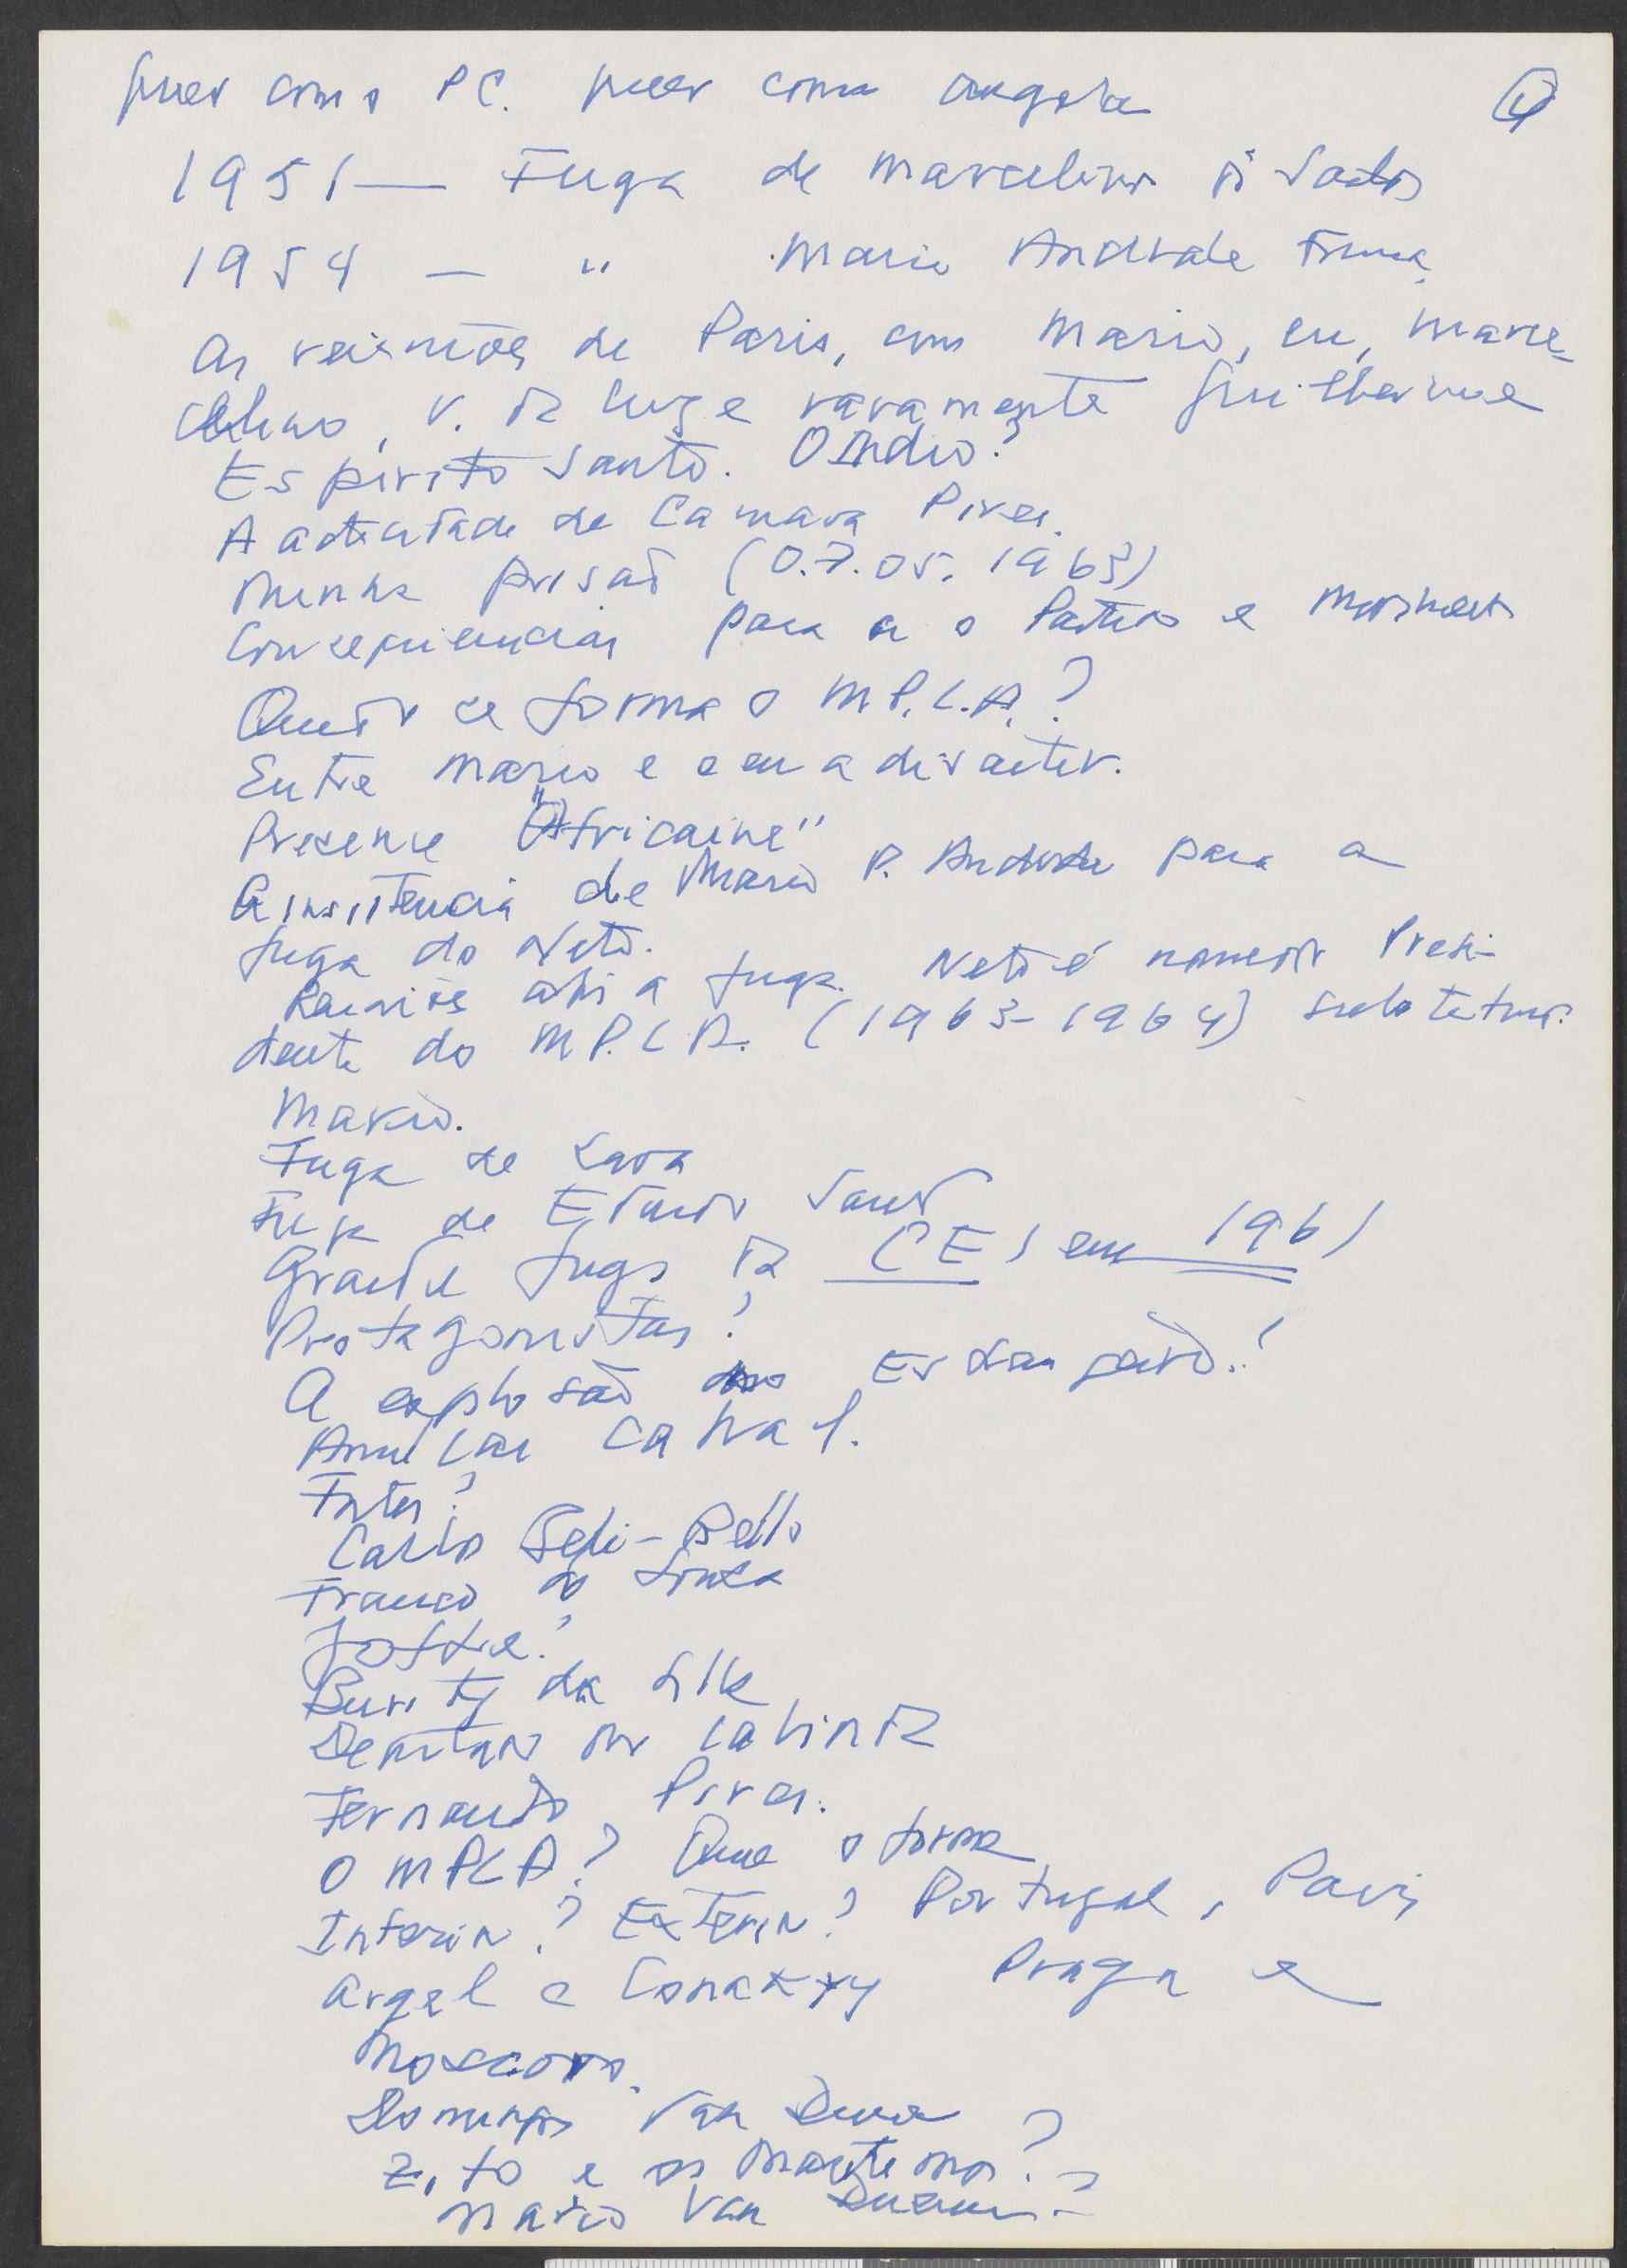 quer como PC. quer como Angola
4
1951 — Fuga de Marcelino dos Santos
1954 — " Mario Andrade França
As reuniões de Paris, com Mario, eu, Marce-
lino, V. da Cruz e raramente Guilherme
Espirito Santo. O Indio?
A actividade de Camara Pires.
Minha prisão (07.05.1963)
Consequencias para a o Partido e
Quando se forma o M.P.L.A.?
Entre Mario e eu a discutir.
Presence "Africaine"
A insistencia de Mario P. Andrade para a
fuga do Neto.
Reuniões a fuga. Neto é nomeado Presi-
dente do M.P.L.A. (1963-1964)
Mario.
Fuga de Lara
Fuga de Eduardo Santos
Grande fuga da CEI em 1961
Protagonistas?
A explosão no Estrangeiro!
Amilcar Cabral.
Fortes?
Carlos Belli-Bello
Franco de Sousa
Jofre?
Burity da Silva
Deputado por Cabinda
Fernando Pires.
O MPLA? Que o forma
Interior? Exterior? Portugal, Paris
Argel e Conakry Praga e
Moscovo.
Domingos Van Dunem
Zito e os Monteiros?
Mario Van Dunem?